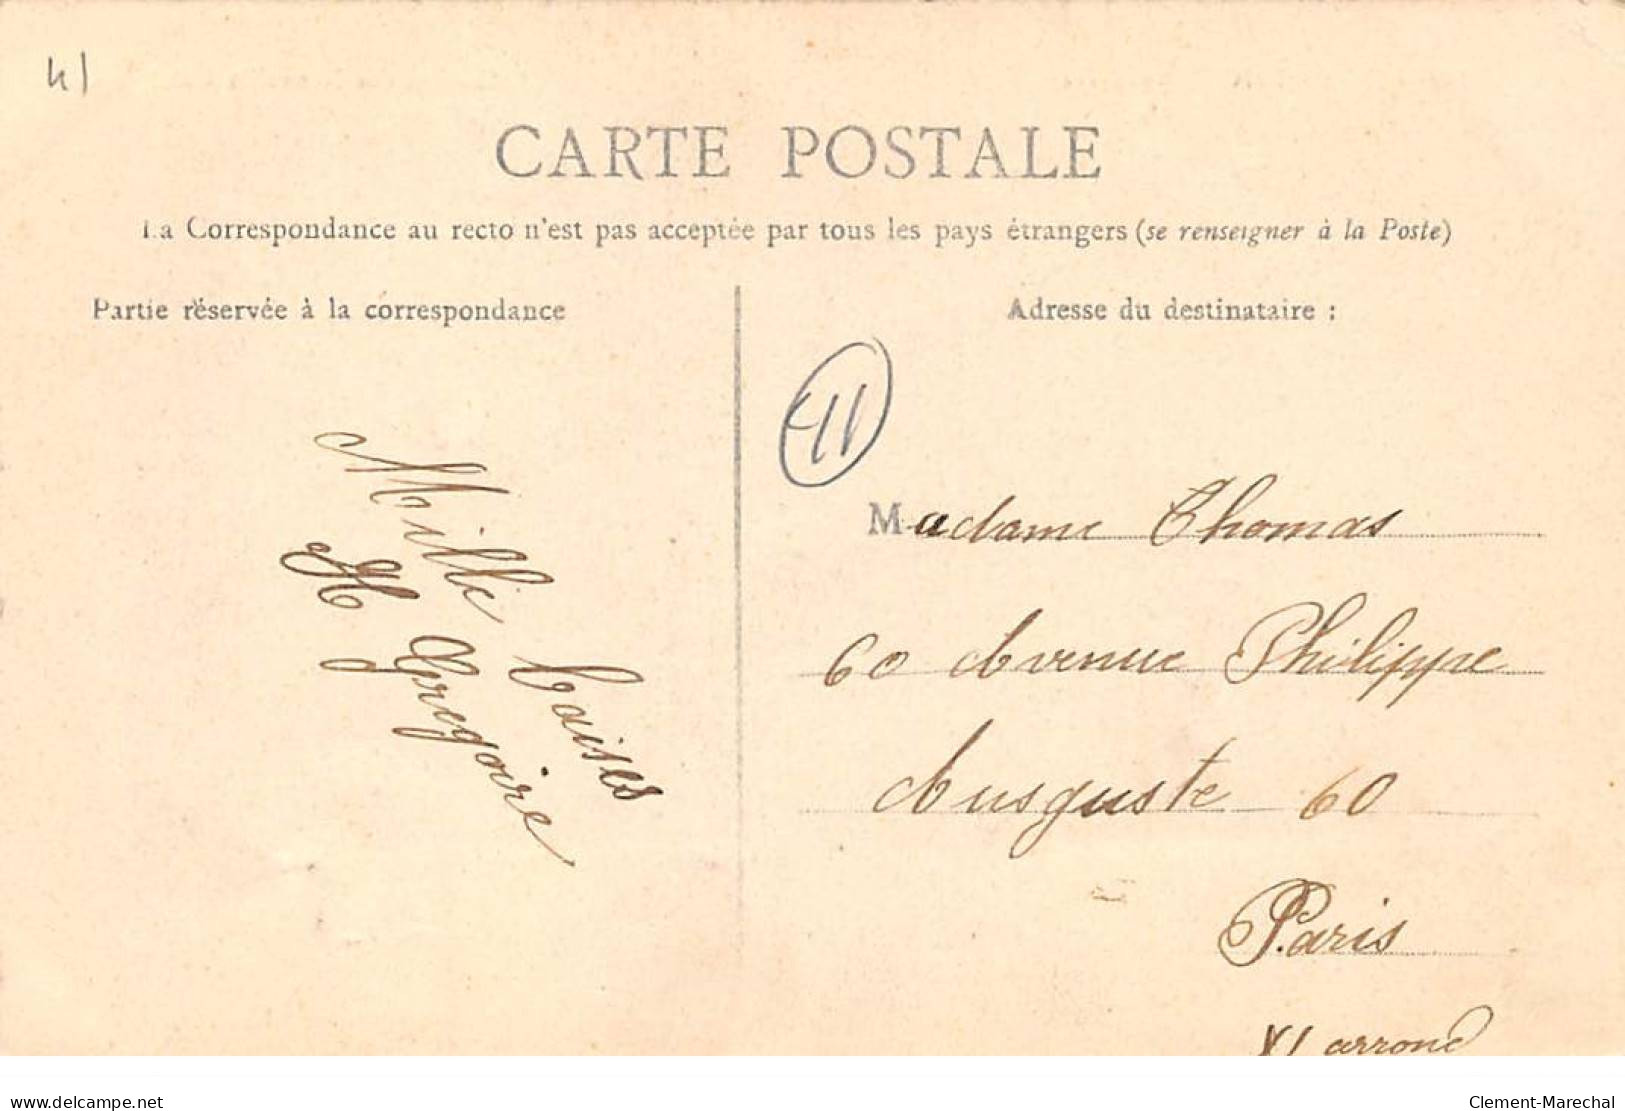 41
CARTE POSTALE
La Correspondance au recto n'est pas acceptée par tous les pays étrangers (se renseigner à la Poste)
Partie réservée à la correspondance
Mille baises
H Gregoire
Adresse du destinataire :
Madame Thomas
60 Avenue Philippe
Ausguste 60
Paris
XI arrond
www.delcampe.net
Clement-Marechal